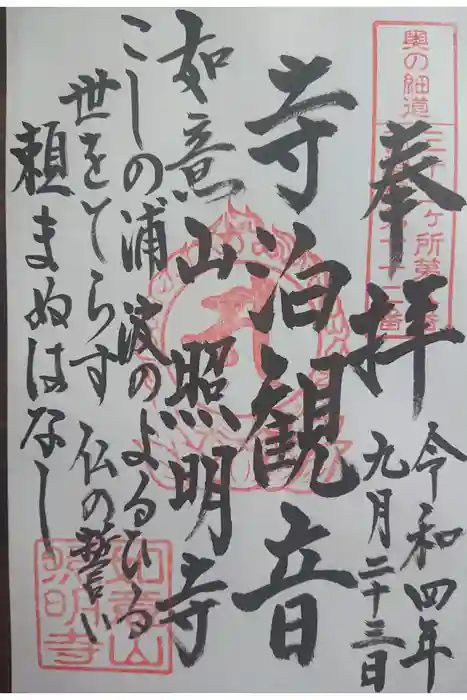 奥の細道
奉拝
令和四年
九月二十三日
寺泊観音
如意山照明寺
こしの浦 波のよるひる
世をてらす 仏の誓い
頼まぬはなし
如意山
照明寺